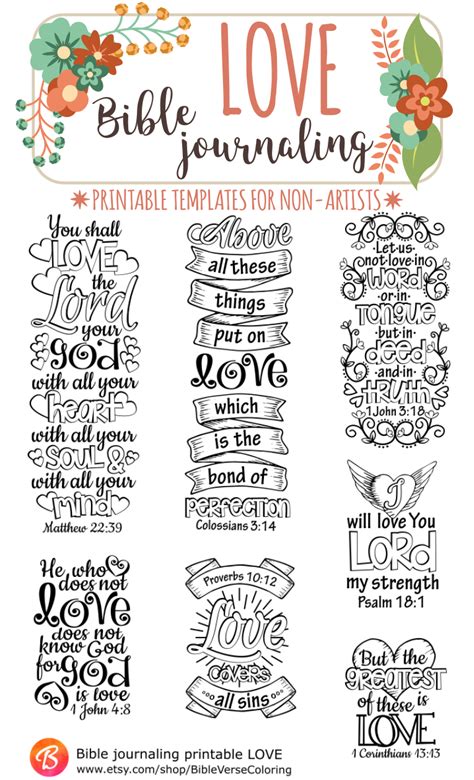 LOVE
Bible
journaling
PRINTABLE TEMPLATES FOR NON-ARTISTS
You shall
LOVE
the
Lord
your
god
with all your
heart
with all your
SOUL &
with all your
mind
Matthew 22:39
Above
all these
things
put on
love
which
is the
bond of
PERFECTION
Colossians 3:14
Let us
not love in
WORD
or in
TONGUE
but in
deed
and in
TRUTH
1 John 3:18
I
will love You
LORD
my strength
Psalm 18:1
He who
does not
love
does not
know God
for god
is love
1 John 4:8
Proverbs 10:12
Love
COVERS
all sins
But the
GREATEST
of these is
LOVE
1 Corinthians 13:13
B
Bible journaling printable LOVE
www.etsy.com/shop/BibleVerseColoring